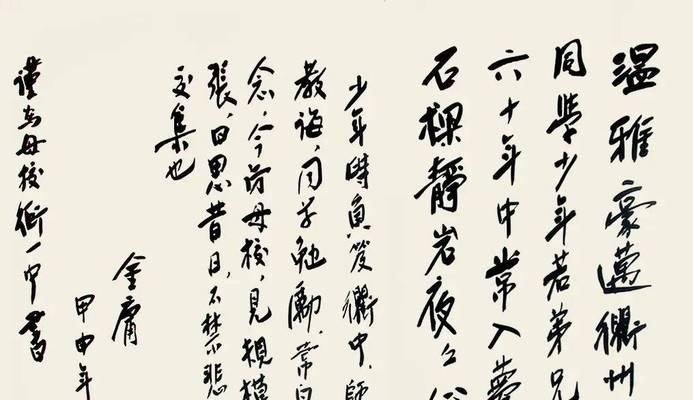 温雅豪迈衢州
同學少年若弟兄
六十年中常入夢
石樑靜岩夜々
少年時負笈衢中，師
教誨，同学勉勵，常自
念，今前母校，見規模
張，日思昔日，不禁悲
交集也
金庸
甲申年
謹為母校衢一中書